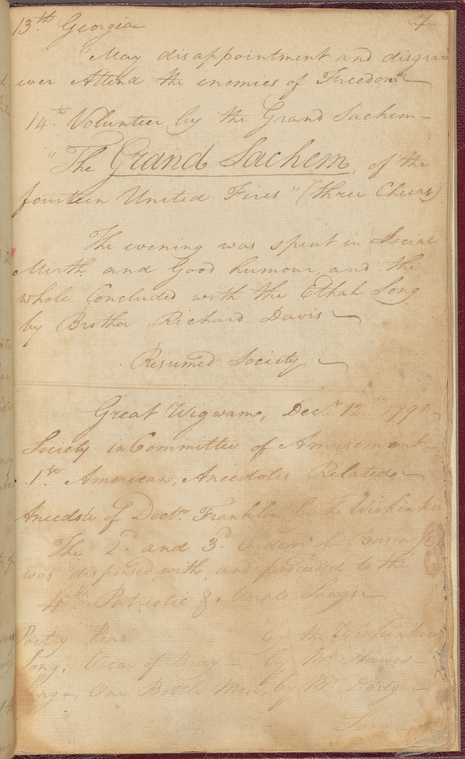 7
13th Georgia
"May disappointment and disgrace
ever Attend the enemies of Freedom"
14th Volunteer by the Grand Sachem –
"The Grand Sachem, of the
fourteen United Fires" (three Cheers)
The evening was spent in Social
Mirth and Good humour, and the
whole Concluded with the Ethah Song
by Brother Richard Davis
Resumed Society
Great Wigwam, Decr. 12th 179
Society in Committee of Amusement
1st American, Anecdotes Related
Anecdote of Doctr. Franklin by the Wiskinkie
The 2d. and 3d. Order of
was dispensed with, and proceeded to the
4th Patriotic & Moral Songs
Poetry Read by the Wiskinkie
Song, Vicar of Bray – by Mr.
One Bottle More, by Mr. Dodge
Song